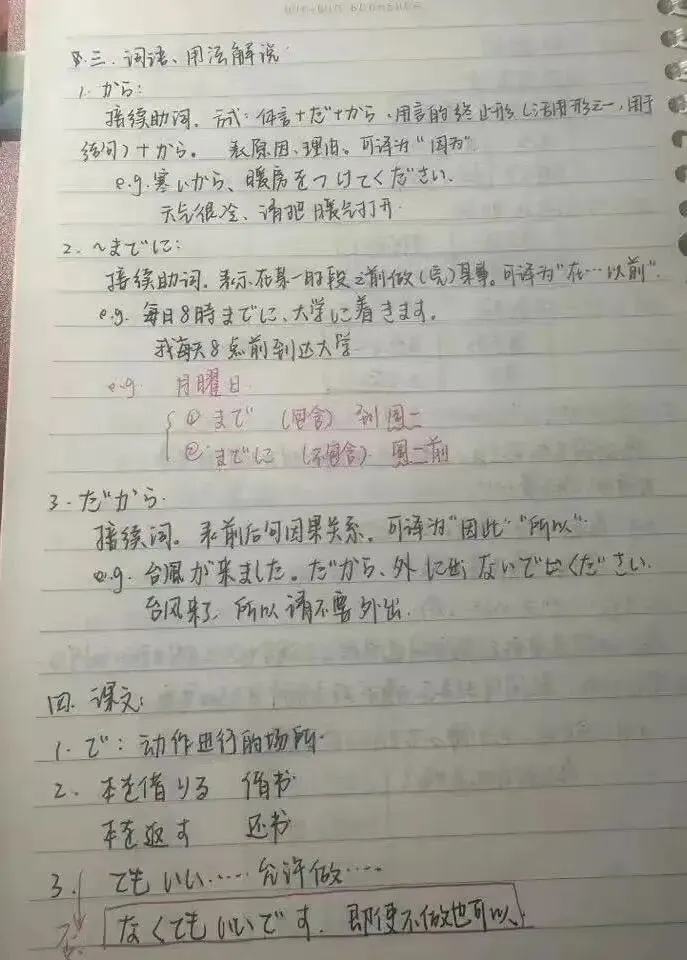 三、词语、用法解说
1. から：
接续助词。方式：体言+だ+から，用言的终止形（活用形之一，用于
结句）+から。 表原因、理由。可译为“因为”
e.g. 寒いから、暖房をつけてください。
天气很冷、请把暖气打开。
2. ～までに：
接续助词。表示在某一时段之前做（完）某事。可译为“在…以前”.
e.g. 每日8時までに、大学に着きます。
我每天8点前到达大学
e.g 月曜日
① まで （包含） 到周二
② までに （不包含） 周二前
3. だから
接续词。表前后句因果关系。可译为“因此”“所以”
e.g. 台風が来ました。だから、外に出ないでください.
台风来了，所以请不要外出.
四. 课文：
1. で：动作进行的场所.
2. 本を借りる 借书
本を返す 还书
3. てもいい…… 允许做……
なくてもいいです. 即便不做也可以.